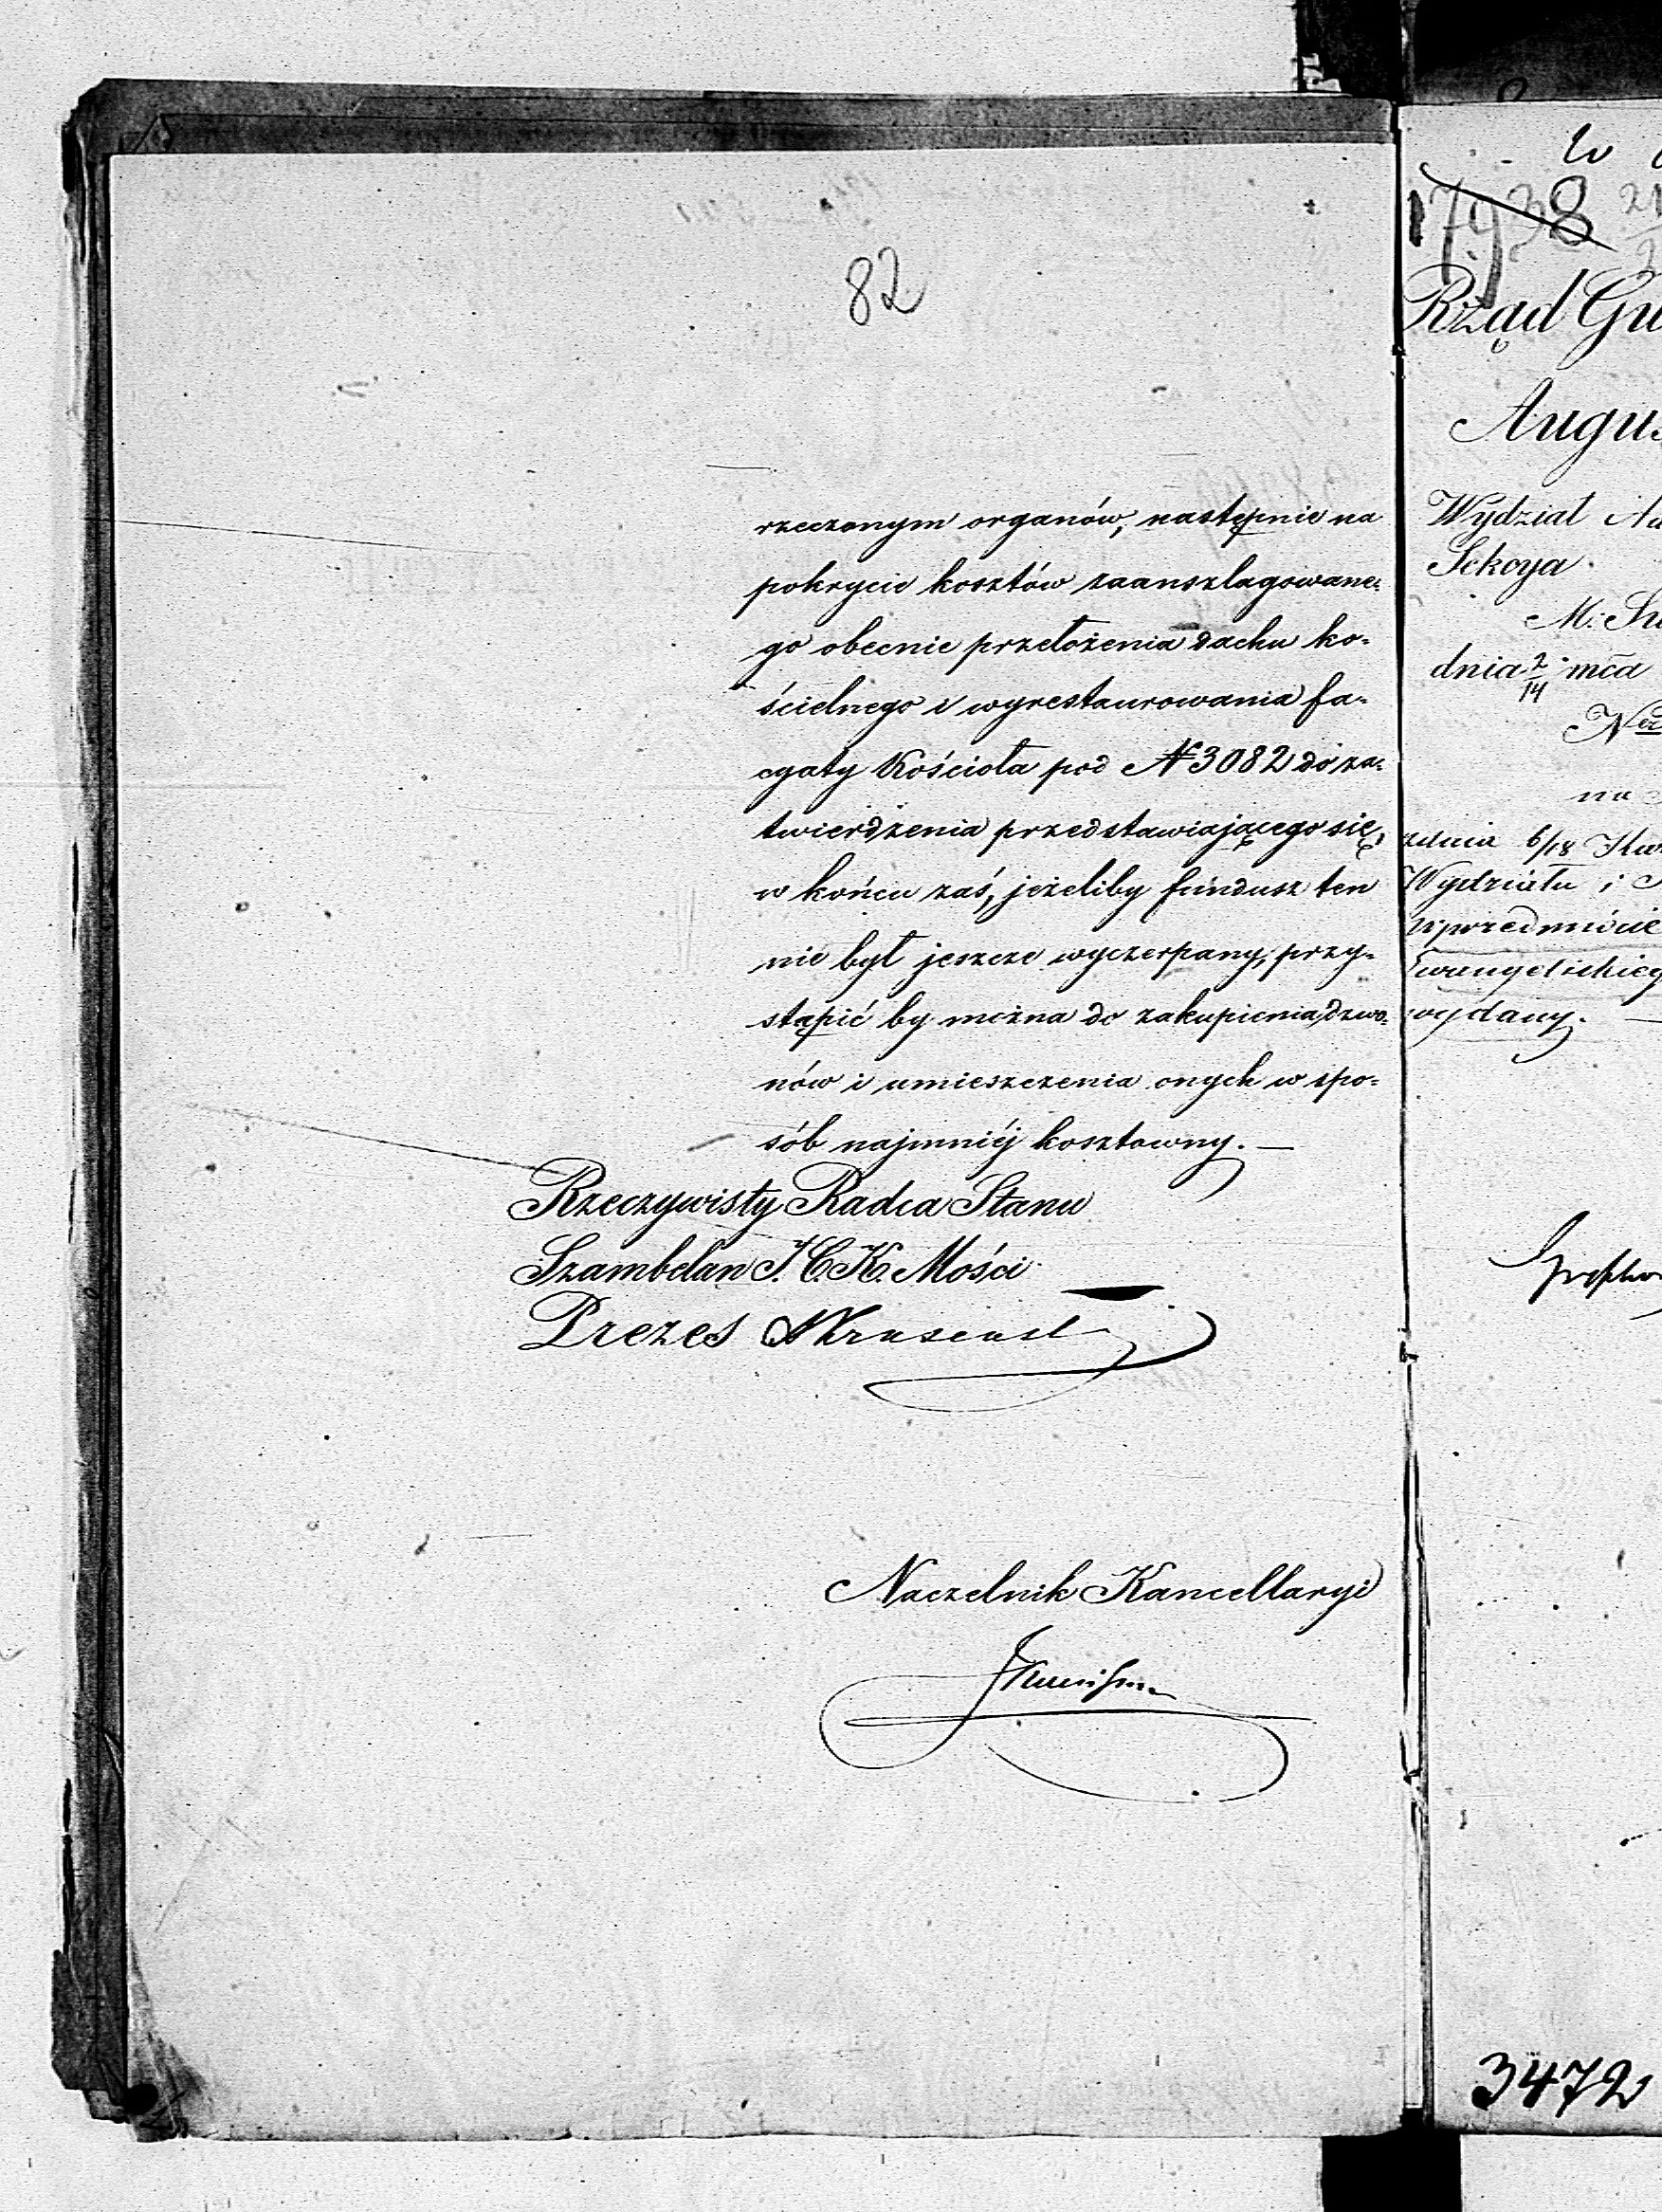 82
rzeczonym organów, następnie na
pokrycie kosztów zaanszlagowane=
go obecnie przełożenia dachu ko=
ścielnego i wyrestaurowania fa=
cyaty Kościoła pod № 3082 do za=
twierdzenia przedstawiającego się,
w końcu zaś, jeżeliby fundusz ten
nie był jeszcze wyczerpany, przy=
stąpić by można do zakupienia dzwo=
nów i umieszczenia onych w spo=
sób najmniéj kosztowny. —
Rzeczywisty Radca Stanu
Szambelan J. C. K. Mości
Prezes
Naczelnik Kancellaryi
17938 21
Rząd Gu
Augus
Wydział Ad
Sekcya
dnia 2/14 mca
Nr
na
z dnia 6/18 Kw
Wydziału i
w przedmiocie
Ewangelickieg
wydany. —
3472